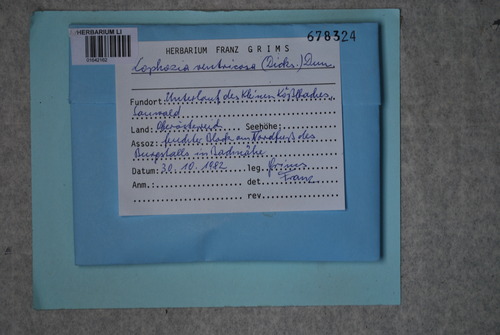 HERBARIUM LI
678324
HERBARIUM FRANZ GRIMS
Lophozia ventricosa (Dicks.) Dum
Fundort: Unterlauf des Kleinen Kößlbaches,
Sauwald
Land: Oberösterreich Seehöhe:
Assoz: feuchter Block am Nordfuß des
in Bachnähe
Datum: 30.10.1982 leg. Grims
Anm.: det Franz
rev.